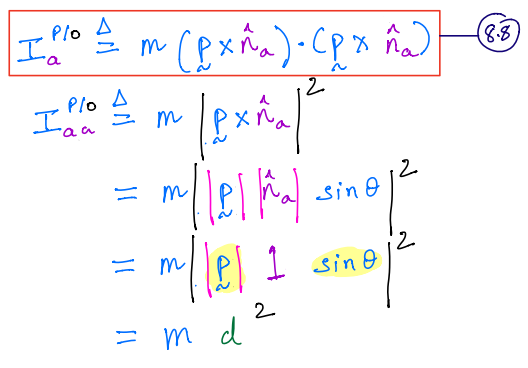 I_a^{P/O} ≜ m (p̰ × n̂_a) · (p̰ × n̂_a) 8.8
I_{aa}^{P/O} ≜ m |p̰ × n̂_a|²
= m | |p̰| |n̂_a| sin θ |²
= m | |p̰| 1 sin θ |²
= m d²